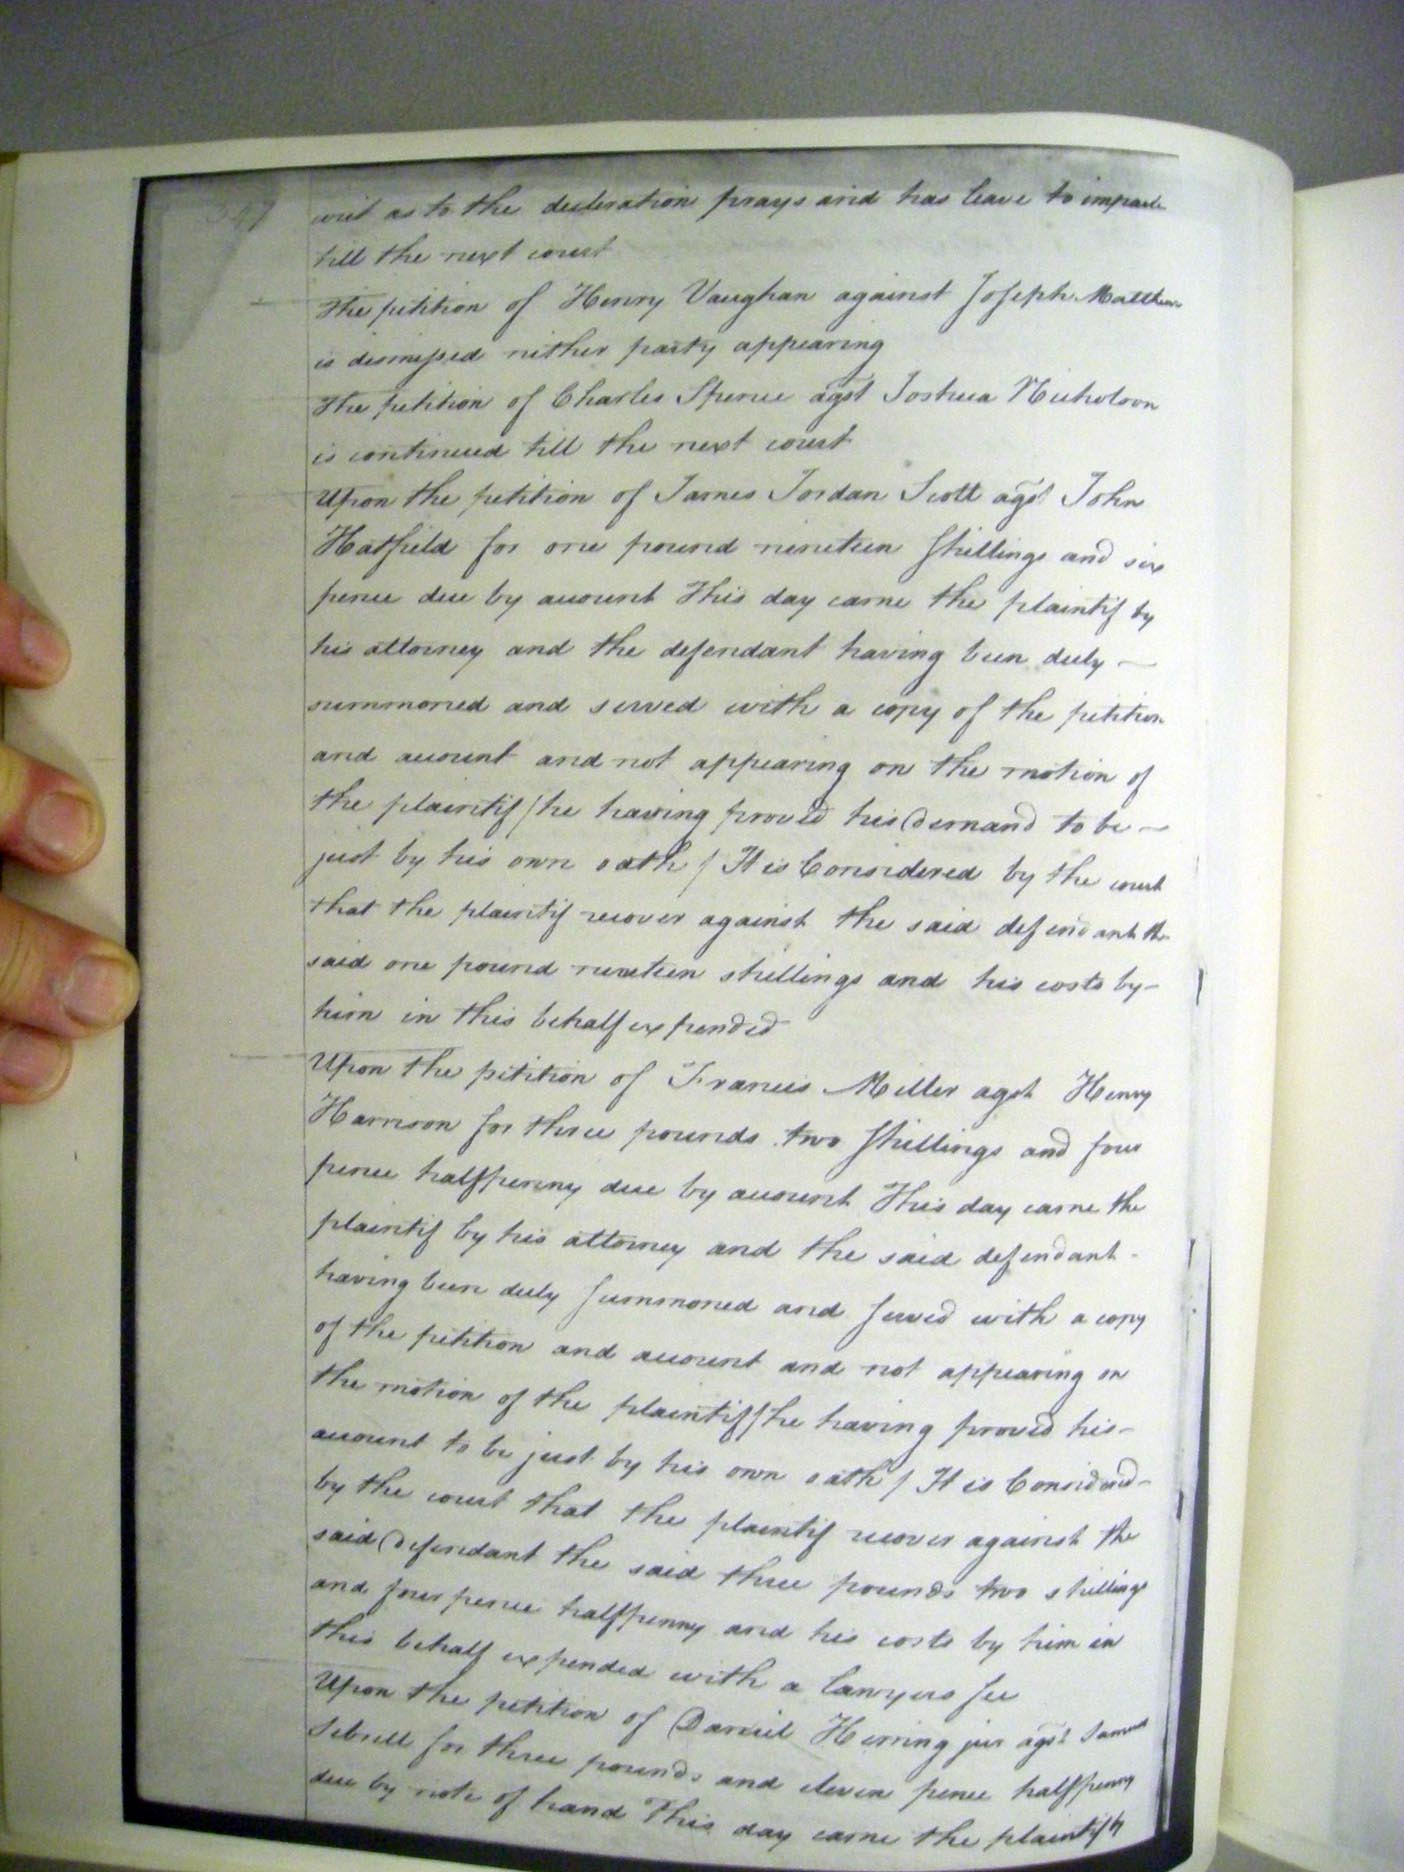 347
writ as to the decleration prays and has leave to imparle
till the next court
The petition of Henry Vaughan against Joseph Matthews
is dismissed nither party appearing
The petition of Charles Spence agst Joshua Nicholson
is continued till the next court
Upon the petition of James Jordan Scott agst John
Hatfield for one pound nineteen shillings and six
pence due by account This day came the plaintif by
his attorney and the defendant having been duly —
summoned and served with a copy of the petition
and account and not appearing on the motion of
the plaintif / he having proved his Demand to be —
just by his own oath / It is Considered by the court
that the plaintif recover against the said defendant the
said one pound nineteen shillings and his costs by —
him in this behalf expended
Upon the petition of Francis Miller agst Henry
Harrison for three pounds two shillings and four
pence halfpenny due by account This day came the
plaintif by his attorney and the said defendant -
having been duly summoned and served with a copy
of the petition and account and not appearing on
the motion of the plaintif / he having proved his —
account to be just by his own oath / It is Considered —
by the court that the plaintif recover against the
said Defendant the said three pounds two shillings
and four pence halfpenny and his costs by him in
this behalf expended with a lawyers fee
Upon the petition of Daniel Herring jur agst Samuel
Sebrell for three pounds and eleven pence halfpenny
due by note of hand This day came the plaintif by